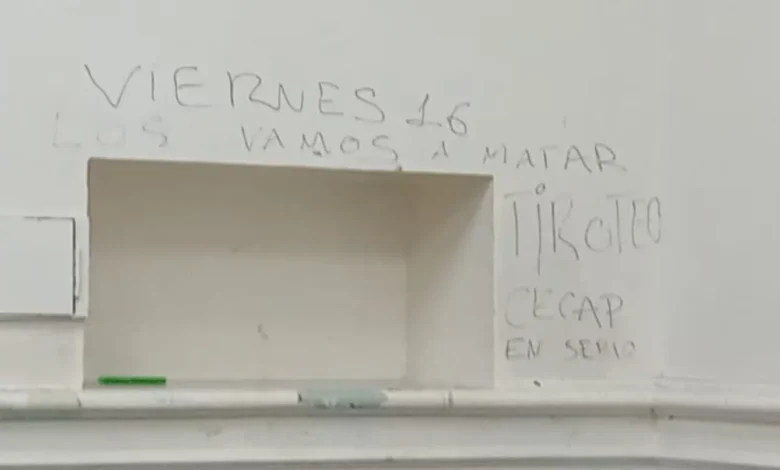 VIERNES 16
LOS VAMOS A MATAR
TIROTEO
CECAP
EN SERIO